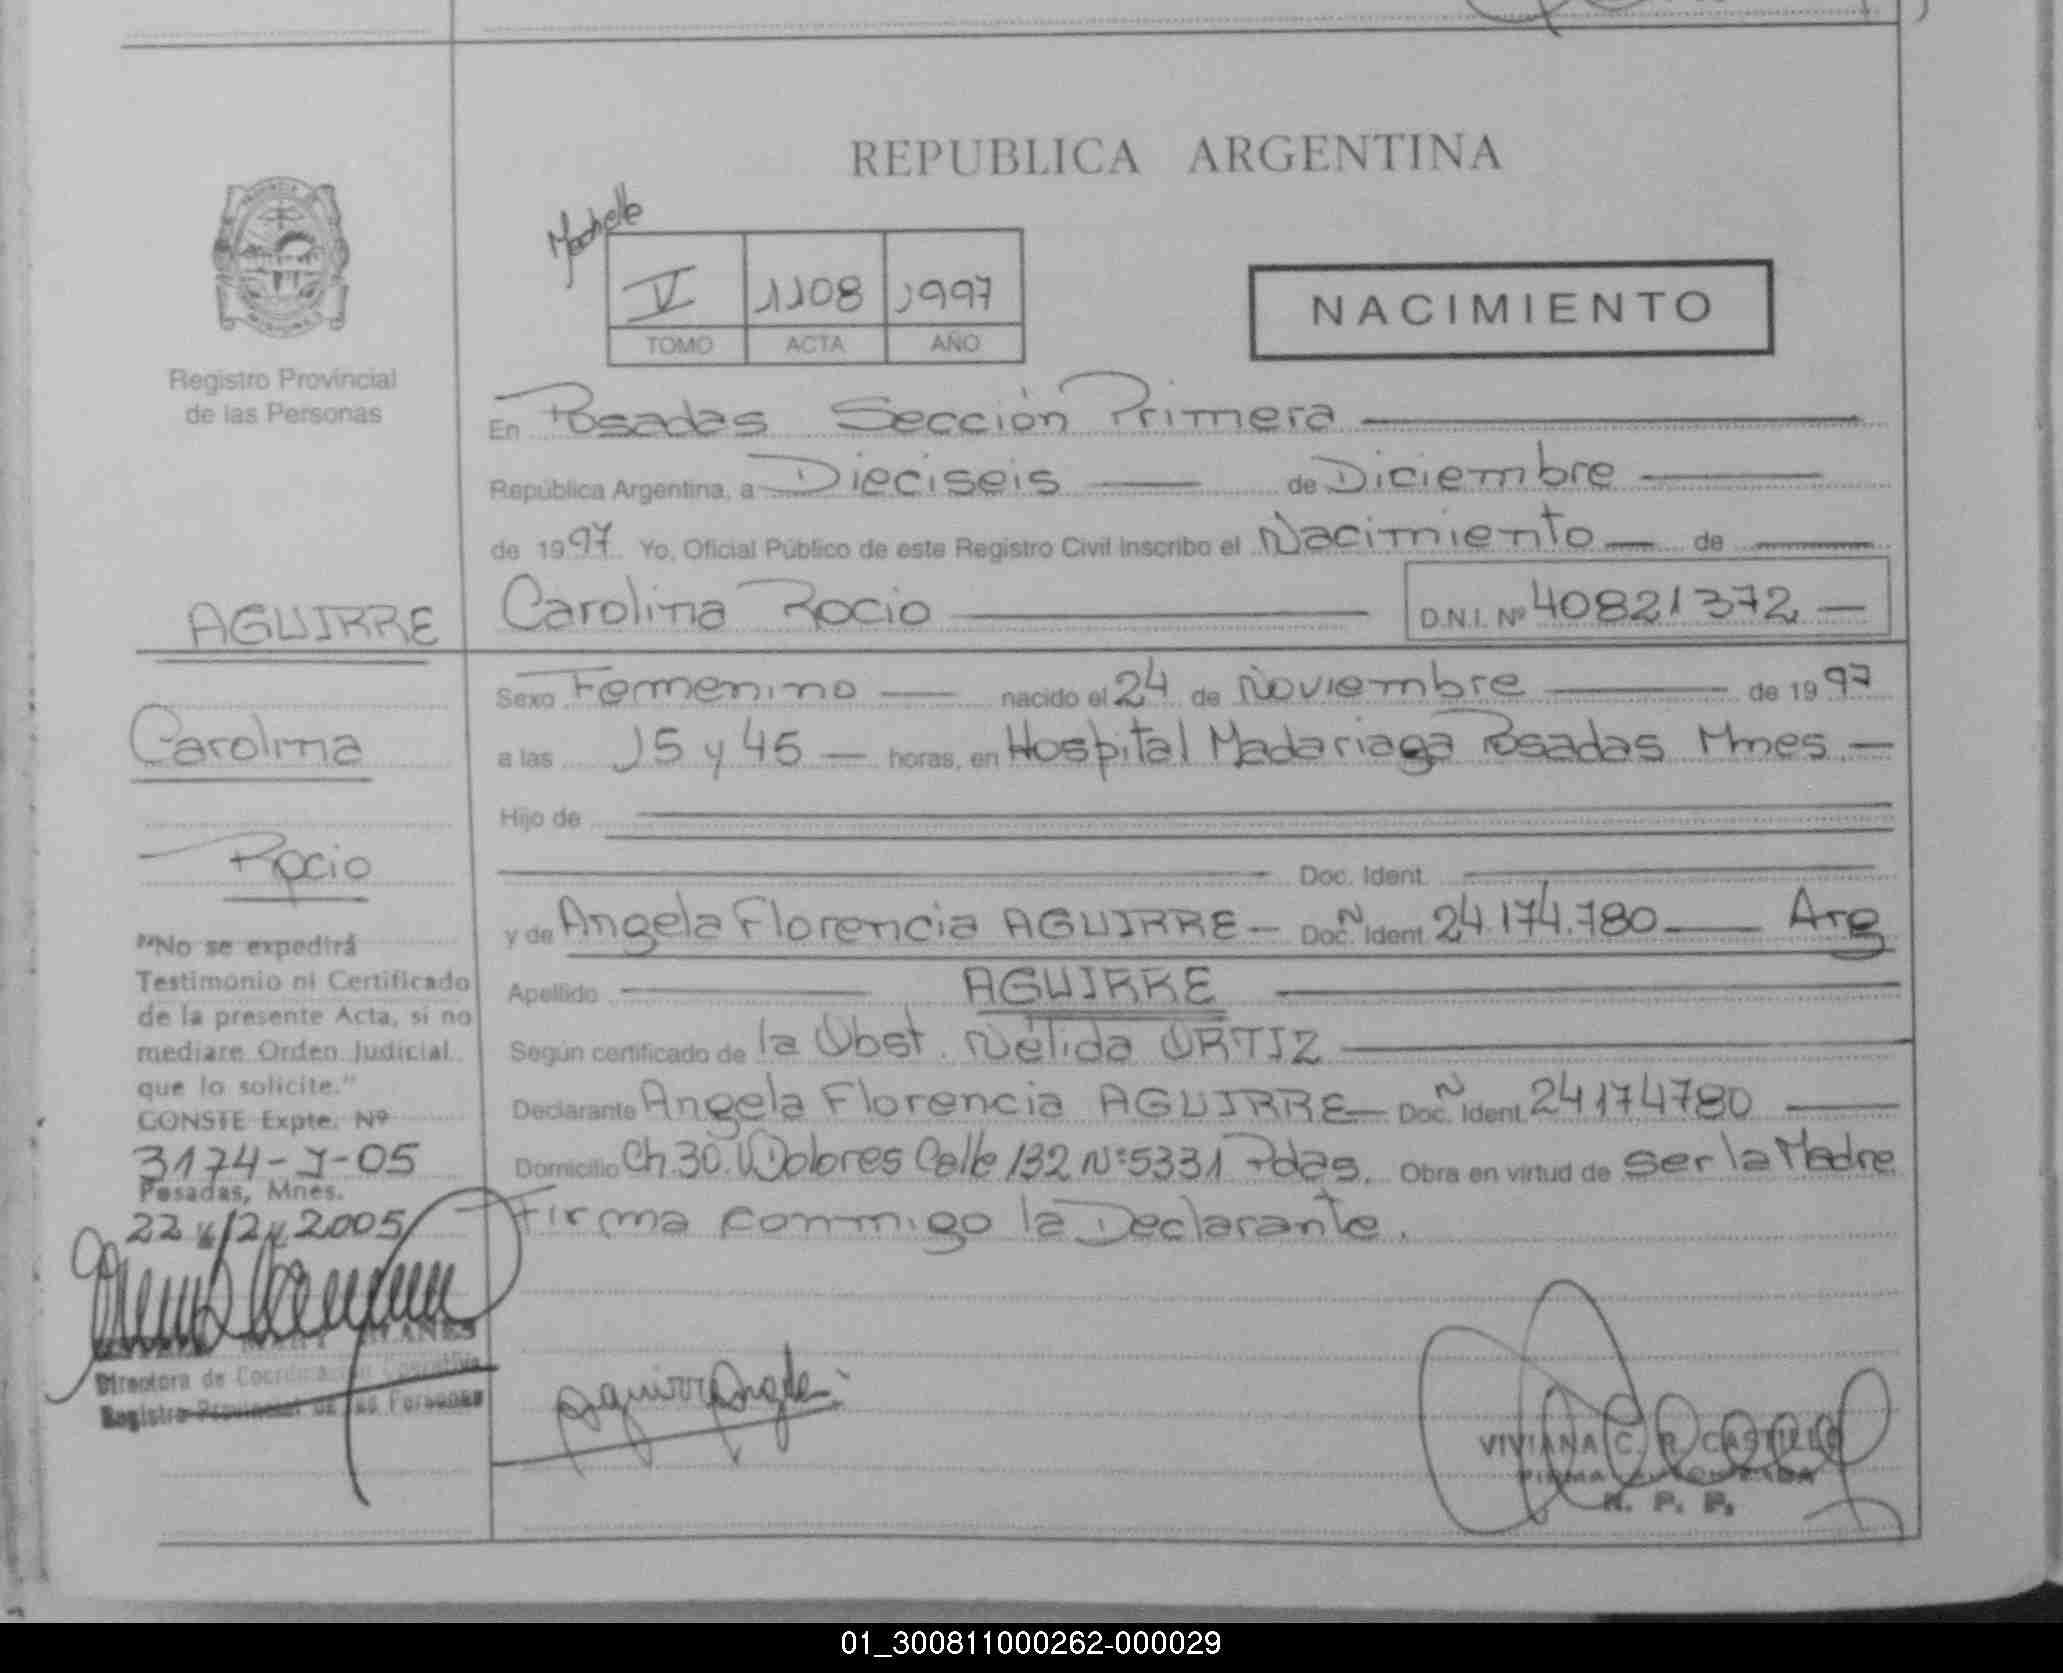 REPUBLICA ARGENTINA
V 1108 1997
TOMO ACTA AÑO
NACIMIENTO
Registro Provincial
de las Personas
En Posadas Sección Primera
República Argentina, a Dieciseis de Diciembre
de 1997 Yo, Oficial Público de este Registro Civil Inscribo el Nacimiento de
Carolina Rocio D.N.I. Nº 40821372
AGUIRRE
Carolina
Rocio
Sexo Femenino nacido el 24 de Noviembre de 1997
a las 15 y 45 horas, en Hospital Madariaga Posadas Mnes.
Hijo de
Doc. Ident.
y de Angela Florencia AGUIRRE Doc. Ident. 24.174.780 Arg
Apellido AGUIRRE
Según certificado de la Obst. Nélida ORTIZ
Declarante Angela Florencia AGUIRRE Doc. Ident. 24174780
Domicilio Ch. 30. Dolores Calle 132 Nº 5331 Pdas. Obra en virtud de ser la Madre
Firma conmigo la Declarante.
"No se expedirá
Testimonio ni Certificado
de la presente Acta, si no
mediare Orden Judicial
que lo solicite."
CONSTE Expte. Nº
3174-J-05
Posadas, Mnes.
22/12/2005
Directora de Coordinación
Registro Provincial de las Personas
Aguirre Angela
VIVIANA C. R. CASTILLO
FIRMA AUTORIZADA
R. P. P.
01_300811000262-000029